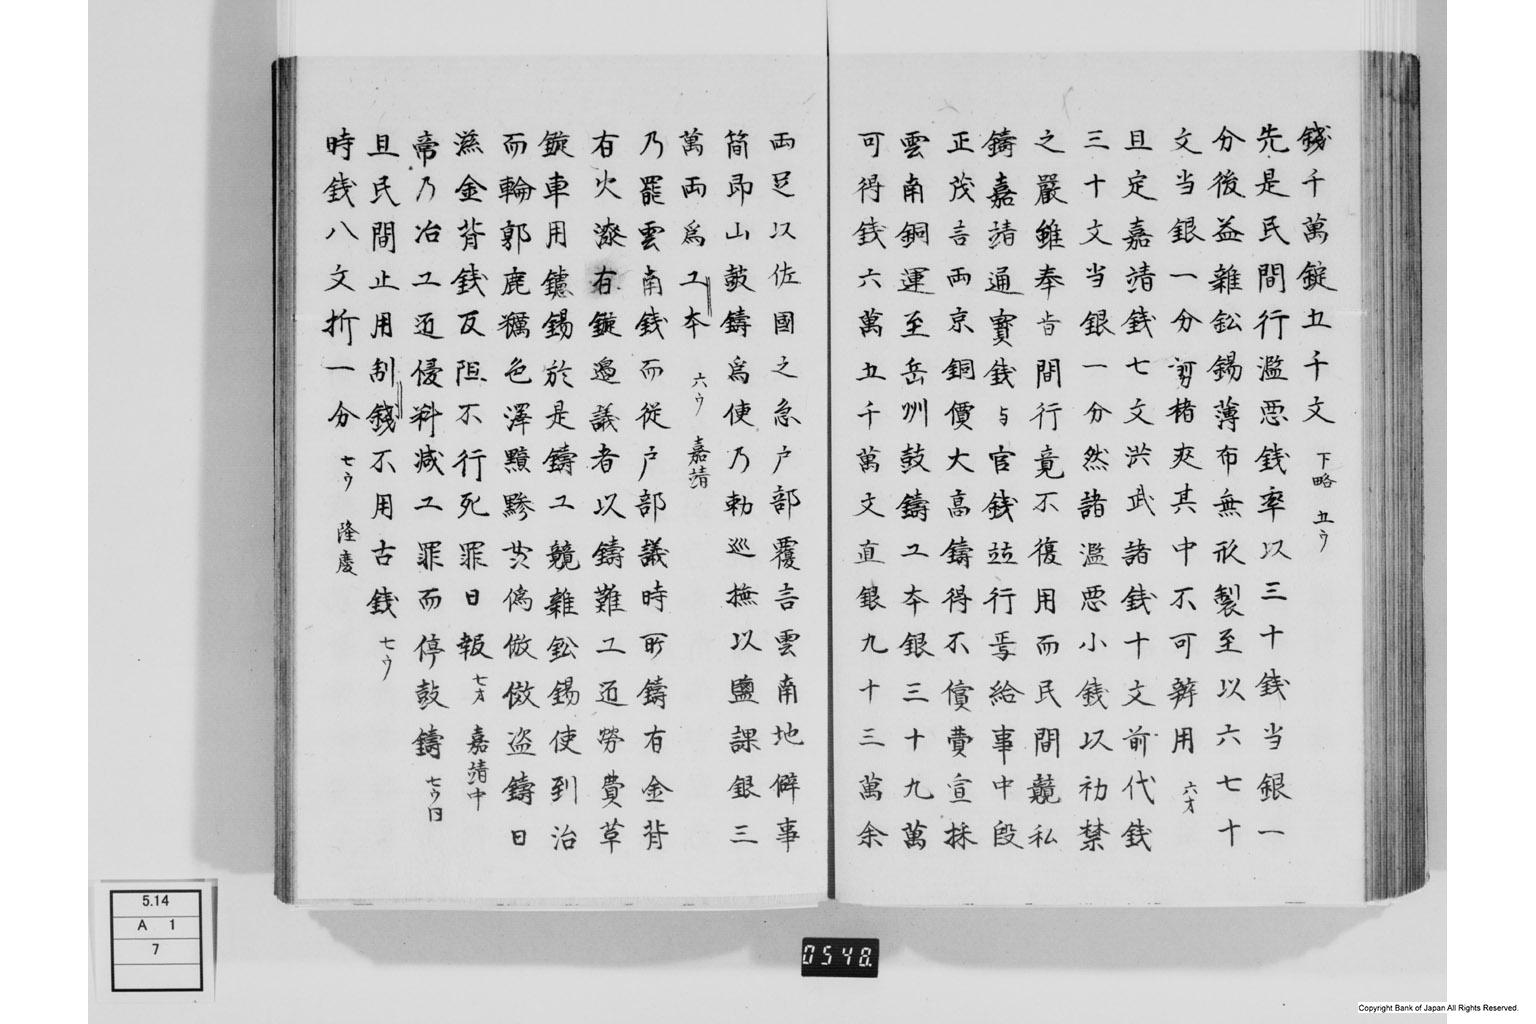 錢千萬錠五千文 下略 五ウ
先是民間行濫悪錢率以三十錢当銀一
分後益雜鈆錫薄布無形製至以六七十
文当銀一分剪楮夾其中不可辨用 六オ
且定嘉靖錢七文洪武諸錢十文前代錢
三十文当銀一分然諸濫悪小錢以初禁
之嚴雖奉旨間行竟不復用而民間競私
鑄嘉靖通寳錢与官錢竝行焉給事中殷
正茂言両京銅價大高鑄得不償費宣採
雲南銅運至岳州鼓鑄工本銀三十九萬
可得錢六萬五千萬文直銀九十三萬余
両足以佐國之急户部覆言雲南地僻事
簡即山鼓鑄爲便乃勅巡撫以鹽課銀三
萬両爲工本 六ウ 嘉靖
乃罷雲南錢而従户部議時所鑄有金背
有火漆有鏇邊議者以鑄難工匠勞費草
鏇車用鑢錫於是鑄工競雜鈆錫使到治
而輪郭鹿糲色澤黯黲 偽倣傚盗鑄日
滋金背錢反阻不行死罪日報 七オ 嘉靖中
帝乃冶工匠侵料减工罪而停鼓鑄 七ウ
且民間止用制錢不用古錢 七ウ
時錢八文折一分 七ウ 隆慶
5.14
A 1
7
0548.
Copyright Bank of Japan All Rights Reserved.